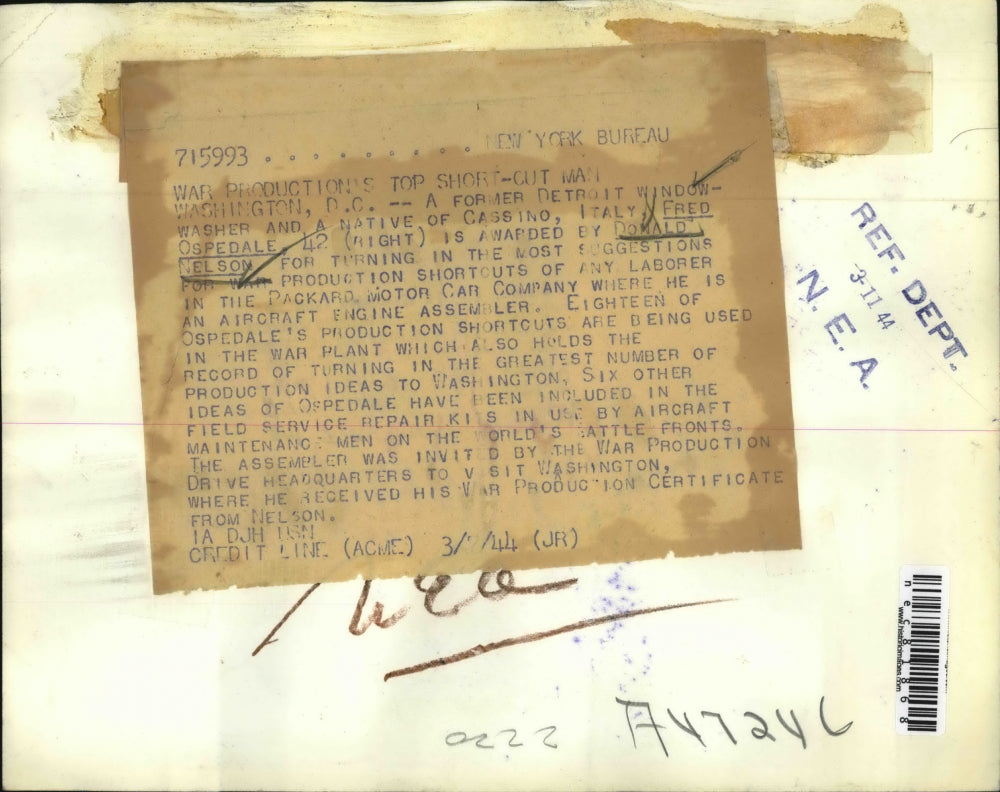 715993 . . . . . . . . . NEW YORK BUREAU
WAR PRODUCTION'S TOP SHORT-CUT MAN
WASHINGTON, D.C. -- A FORMER DETROIT WINDOW-
WASHER AND A NATIVE OF CASSINO, ITALY, FRED
OSPEDALE, 42 (RIGHT) IS AWARDED BY DONALD
NELSON FOR TURNING IN THE MOST SUGGESTIONS
FOR WAR PRODUCTION SHORTCUTS OF ANY LABORER
IN THE PACKARD MOTOR CAR COMPANY WHERE HE IS
AN AIRCRAFT ENGINE ASSEMBLER. EIGHTEEN OF
OSPEDALE'S PRODUCTION SHORTCUTS ARE BEING USED
IN THE WAR PLANT WHICH ALSO HOLDS THE
RECORD OF TURNING IN THE GREATEST NUMBER OF
PRODUCTION IDEAS TO WASHINGTON, SIX OTHER
IDEAS OF OSPEDALE HAVE BEEN INCLUDED IN THE
FIELD SERVICE REPAIR KITS IN USE BY AIRCRAFT
MAINTENANCE MEN ON THE WORLD'S BATTLE FRONTS.
THE ASSEMBLER WAS INVITED BY THE WAR PRODUCTION
DRIVE HEADQUARTERS TO VISIT WASHINGTON,
WHERE HE RECEIVED HIS WAR PRODUCTION CERTIFICATE
FROM NELSON.
1A DJH USN
CREDIT LINE (ACME) /44 (JR)
REF. DEPT.
3-11 44
N. E. A.
nec81868
www.historicimages.com
0222
A47246